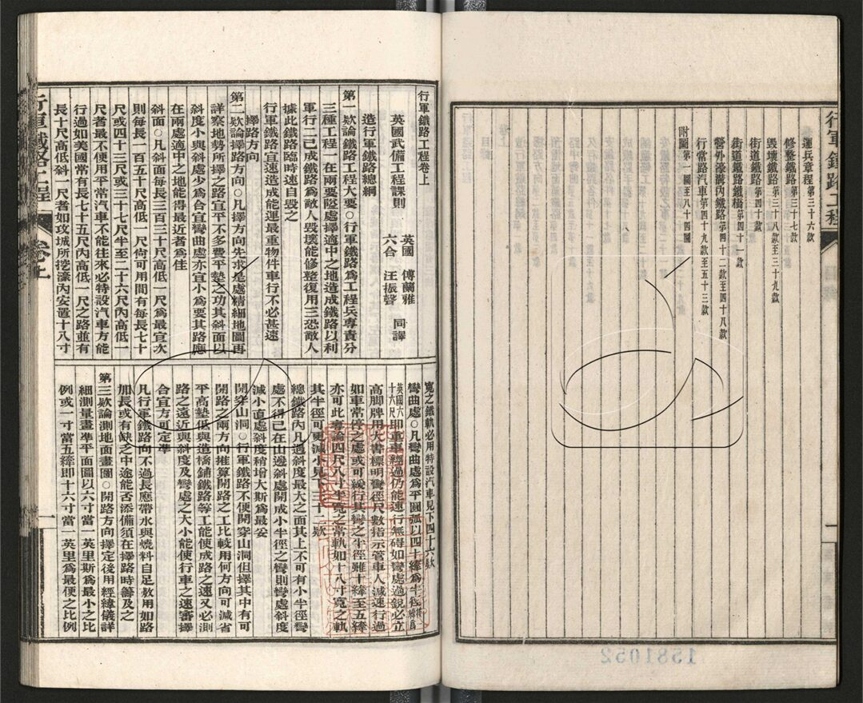 行軍鐵路工程
運兵章程第三十六款
修整鐵路第三十七款
毀壞鐵路第三十八款至三十九款
街道鐵路第四十款
街道鐵路鐵橋第四十一款
營外濠塹內鐵路第四十二款至四十八款
行當路汽車第四十九款至五十三款
附圖第一圖至八十四圖
行軍鐵路工程卷上
英國武備工程課則
英國 傅蘭雅
六合 汪振聲
同譯
造行軍鐵路總綱
第一欵論鐵路工程大要○行軍鐵路為工程兵專責分
三種工程一在兩要隘處擇適中之地造成鐵路以利
軍行二已成鐵路為敵人毀壞能修整復用三恐敵人
據此鐵路臨時速自毀之
行軍鐵路宜速造成能運最重物件車行不必甚速
擇路方向
第二欵論擇路方向○凡擇方向先求是處精細地圖再
詳察地勢所擇之路宜平不多費平墊之功其斜面以
斜度小與斜處少為合宜彎曲處亦宜小為要其路應
在兩處適中之地能得最近者為佳
斜面○凡斜面每長三百三十尺高低一尺為最宜次
則每長一百五十尺高低一尺倘可用間有每長七十
尺或四十三尺或三十七尺半至二十六尺內高低一
尺者最不便用平常汽車不能往來必特設汽車方能
行過如美國常有長七十五尺內高低一尺之路並有
長十尺高低斜一尺者如攻城所挖濠內安置十八寸
寬之鐵軌必用特設汽車見下四十六欵
彎曲處○凡彎曲處為平圓弧以四十鏈為半徑
即重車經過仍能速行無碍如彎處過銳必立
高脚牌用大書標明彎徑尺數指示管車人減速行過
如車常停之處或可緩行其彎之半徑雖十鏈至五鏈
亦可此專論四尺八寸半寬之常軌如十八寸寬之軌
其半徑可更減小見下三十二欵
總鐵路內凡遇斜度最大之面其上不可有小半徑彎
處不得已在山邊斜處開成小半徑之彎則彎處斜度
減小直處斜度稍增大斯為最妥
開穿山洞○行軍鐵路不便開穿山洞但擇其中有可
開路之兩方向推算開路之工比較用何方向可減省
平高墊低與造橋鋪鐵路等工能使成路之速又必測
路之遠近與斜度及彎處之大小能使行車之速審擇
合宜方可定準
凡行軍鐵路向不過長應帶水與燒料自足敷用如路
加長或有缺乏中途能否添備須在擇路時籌及之
第三欵論測地面畫圖○開路方向擇定後用經緯儀詳
細測量畫準平面圖以六寸當一英里斯為最小之比
例或一寸當五鏈即十六寸當一英里為最便之比例
行軍鐵路工程
卷上
一
1581052